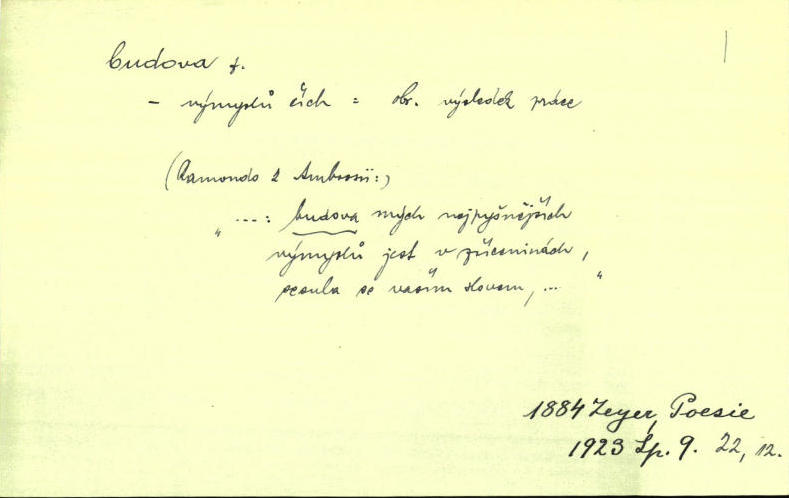 budova f.
- výmyslů čích = obr. výsledek práce
(Ramondo z Ambrosii:)
„ ...: budova mých nejpyšnějších
výmyslů jest v zříceninách,
sesula se vaším slovem, ... “
1884 Zeyer, Poesie
1923 Sp. 9. 22, 12.